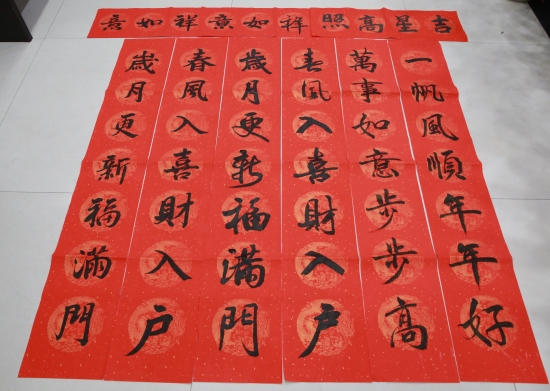 吉星高照祥如意祥如意
一帆風順年年好
萬事如意步步高
春風入喜財入户
歲月更新福滿門
春風入喜財入户
歲月更新福滿門